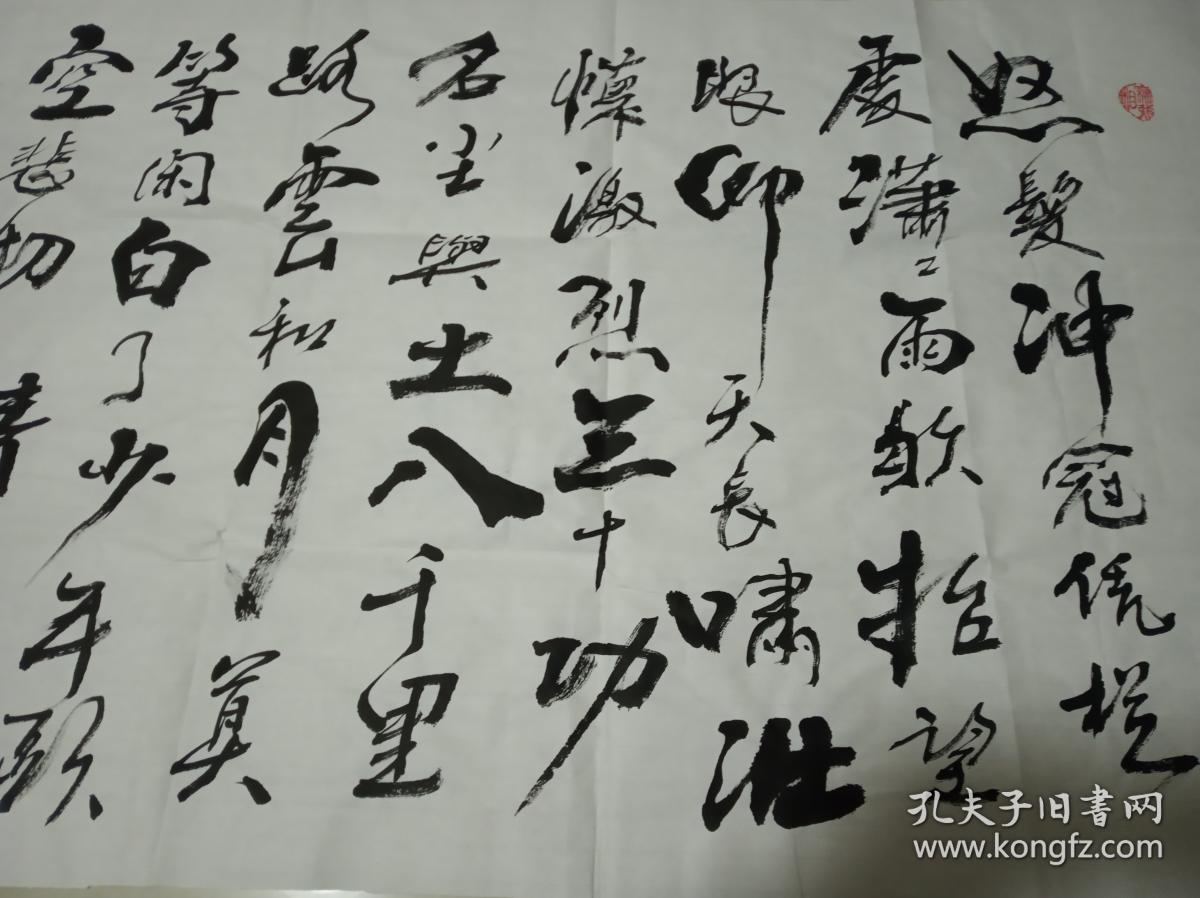 怒髮冲冠凭栏
處瀟〻雨歇抬望
眼仰天長嘯壯
懷激烈三十功
名尘與土八千里
路雲和月莫
等闲白了少年頭
空悲切
孔夫子旧书网
www.kongfz.com